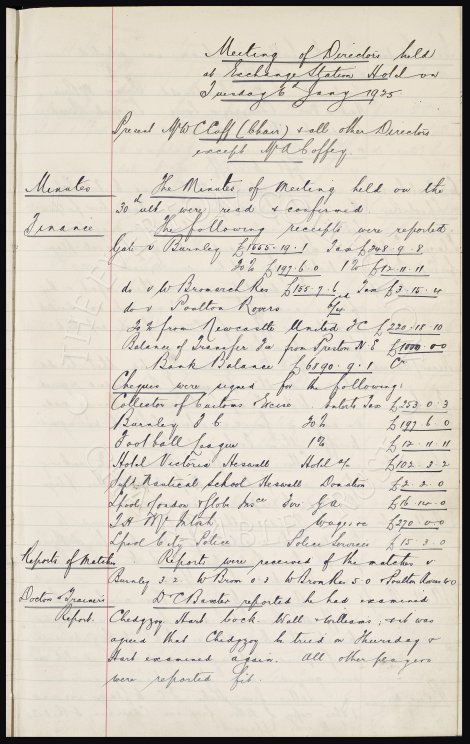 Meeting of Directors held
at Exchange Station Hotel on
Tuesday 6th Jany 1925
Present Mr W C Cuff (Chair) & all other Directors
except Mr A Coffey.
Minutes
The Minutes of Meeting held on the
30th ult were read & confirmed.
Finance
The following receipts were reported
Gate v Burnley £1655.19.1 Tax £248.9.8
20% £197.6.0 1% £12.11.11
do v W Bromwich Res £155.7.6 Tax £3.15.4
do v Poulton Rovers
20% from Newcastle United FC £220.18.10
Balance of Transfer from Preston N E £1000.0.0
Bank Balance £6890.9.1 Cr
Cheques were signed for the following:
Collector of Customs Excise Enterts Tax £253.0.3
Burnley F C 20% £197.6.0
Football League 1% £12.11.11
Hotel Victoria Heswall Hotel a/c £102.2.2
Nautical School Heswall Donation £2.2.0
Lpool London & Globe Insce £16.14.0
Wages &c £270.0.0
Lpool City Police Police Services £15.3.0
Reports of Matches
Reports were received of the matches v
Burnley 3 2 W Brom 0 3 W Brom Res 5 0 & Poulton Rovers 6 0
Doctor & Trainers
Report.
Dr C Baxter reported he had examined
Chedgzoy Hart Cock Wall & Williams, & it was
agreed that Chedgzoy be tried on Thursday &
Hart examined again. All other players
were reported fit.